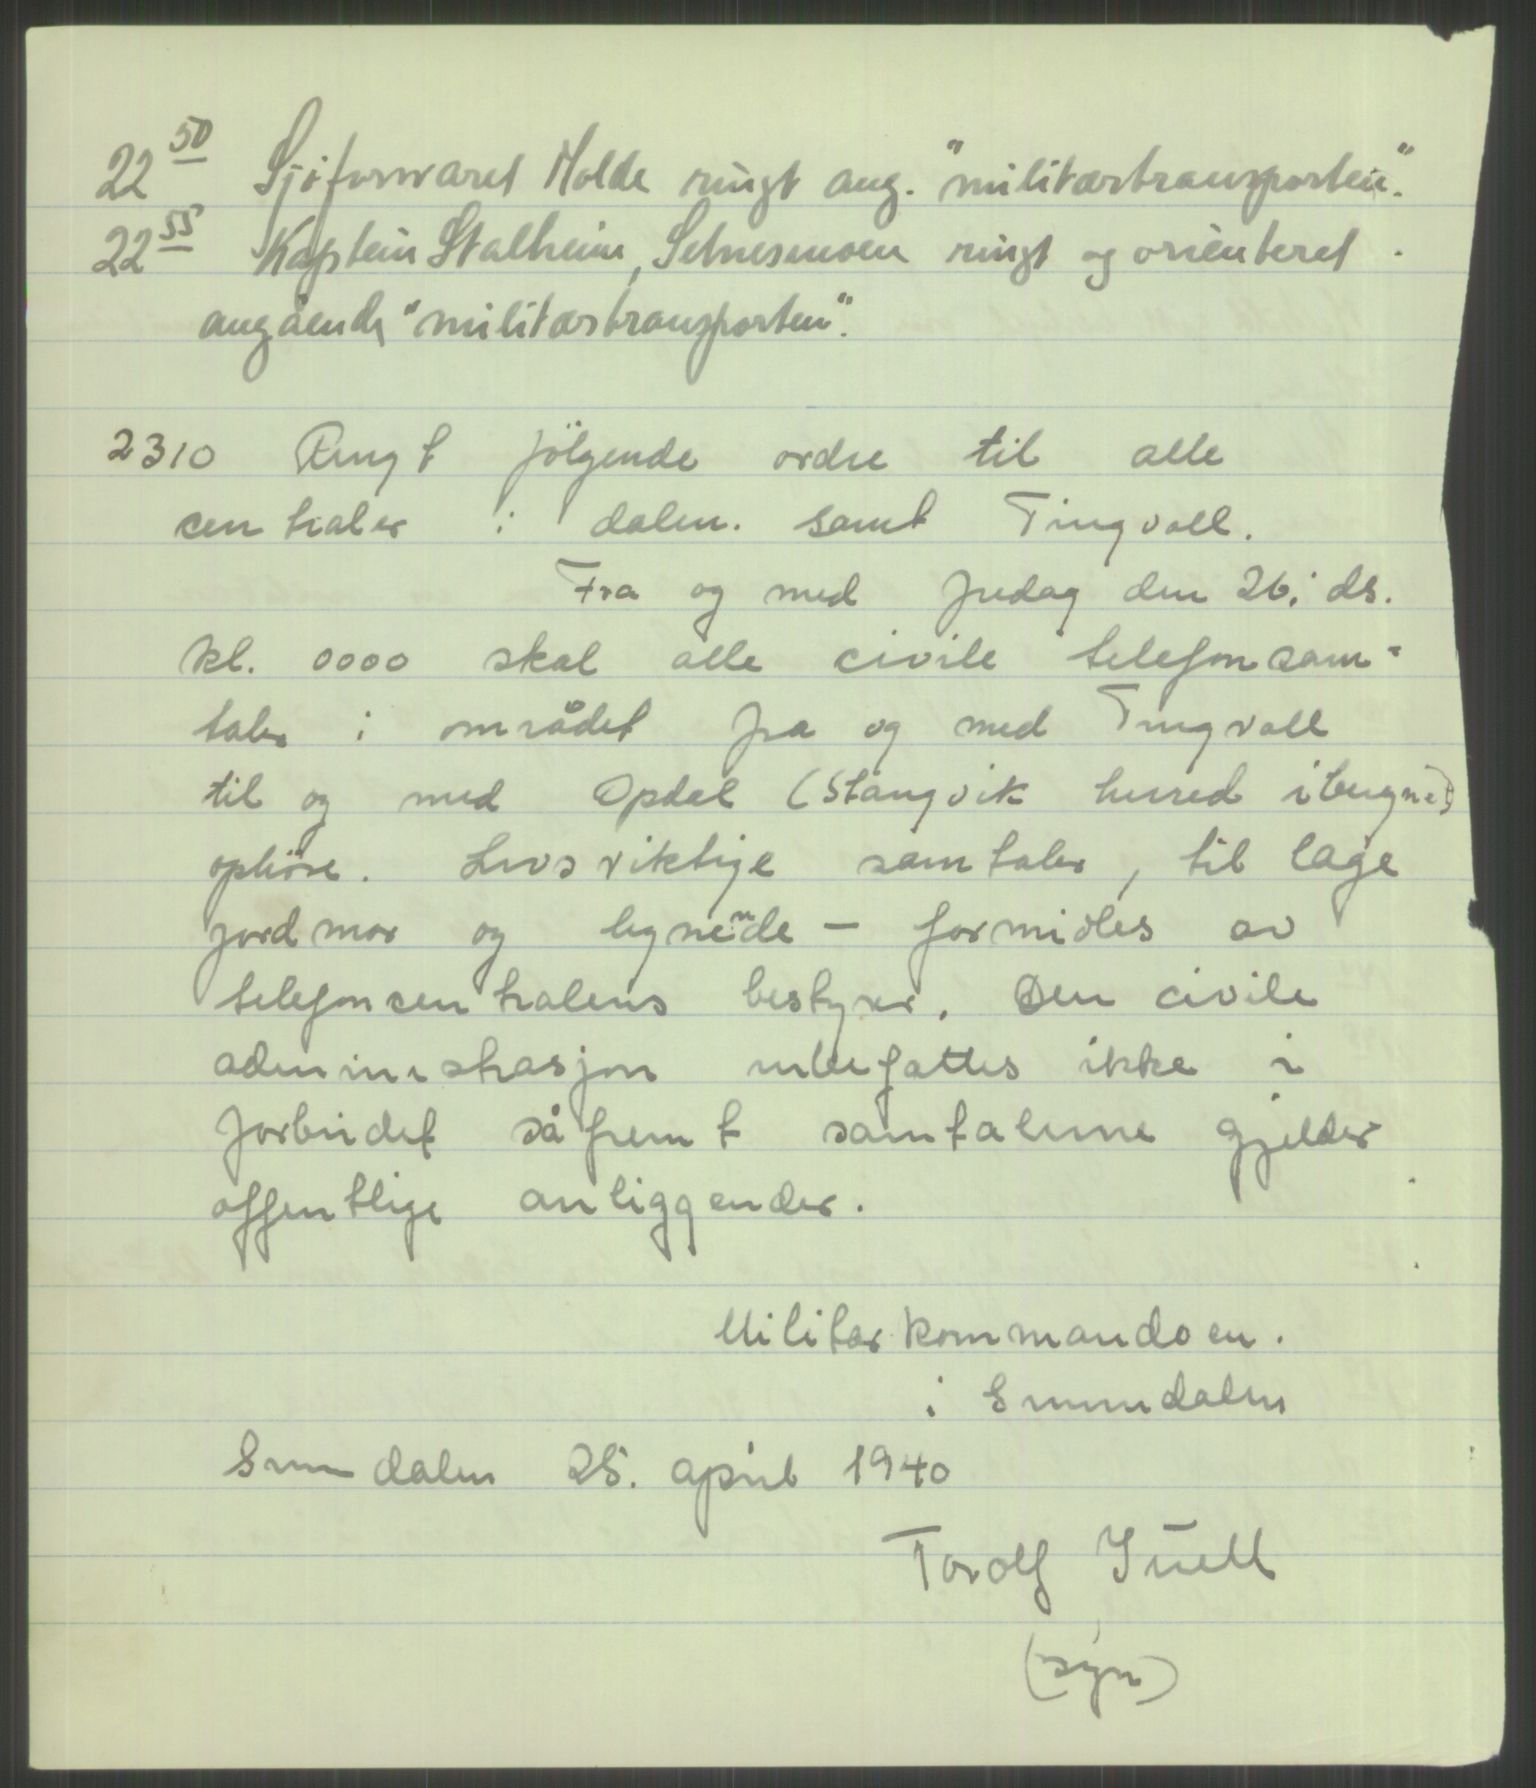 22⁵⁰ Sjøforsvaret Molde ringt ang. "militærtransporten".
22⁵⁵ Kaptein Stalheim, Setnesmoen ringt og orienteret
angående "militærtransporten".
2310 Ringt følgende ordre til alle
centraler i dalen. samt Tingvoll.
Fra og med fredag den 26. ds.
kl. 0000 skal alle civile telefonsam-
taler i området fra og med Tingvoll
til og med Opdal (Stangvik herred iberegnet)
ophøre. Livsviktige samtaler, til læge
jordmor og lignende – formidles av
telefoncentralens bestyrer. Den civile
administrasjon innbefattes ikke i
forbudet såfremt samtalene gjelder
offentlige anliggender.
Militærkommandoen.
i Sunndalen
Sunndalen 25. april 1940
Torolf Juell
(sign)